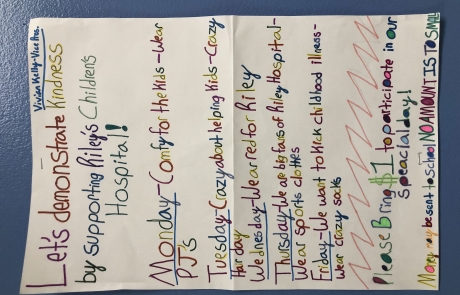 Vivian Kelly-Vice Pres.
Let's demonstrate Kindness
by supporting Riley's Children's
Hospital!
Monday-Comfy for the Kids-Wear
PJ's
Tuesday-Crazy about helping Kids-Crazy
Hair day
Wednesday-Wear red for Riley
Thursday-We are big fans of Riley Hospital-
Wear sports clothes
Friday-We want to kick childhood illness-
wear crazy socks
Please Bring $1 to participate in our
speacial day!
Money may be sent to school NO AMOUNT IS TO SMALL